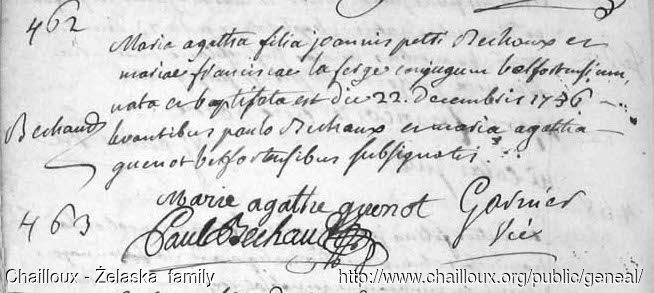 462
Maria agatha filia joannis petri Bechaux et
mariae franciscae la ferge conjugum belfortensium,
nata et baptisata est die 22. decembris 1736
Bechaud
levantibus paulo Bechaux et maria agatha
guenot belfortensibus subsignatis.
Marie agathe guenot Garnier
463
Paul Bechaux
vic
Chailloux - Żelaska family
http://www.chailloux.org/public/geneal/